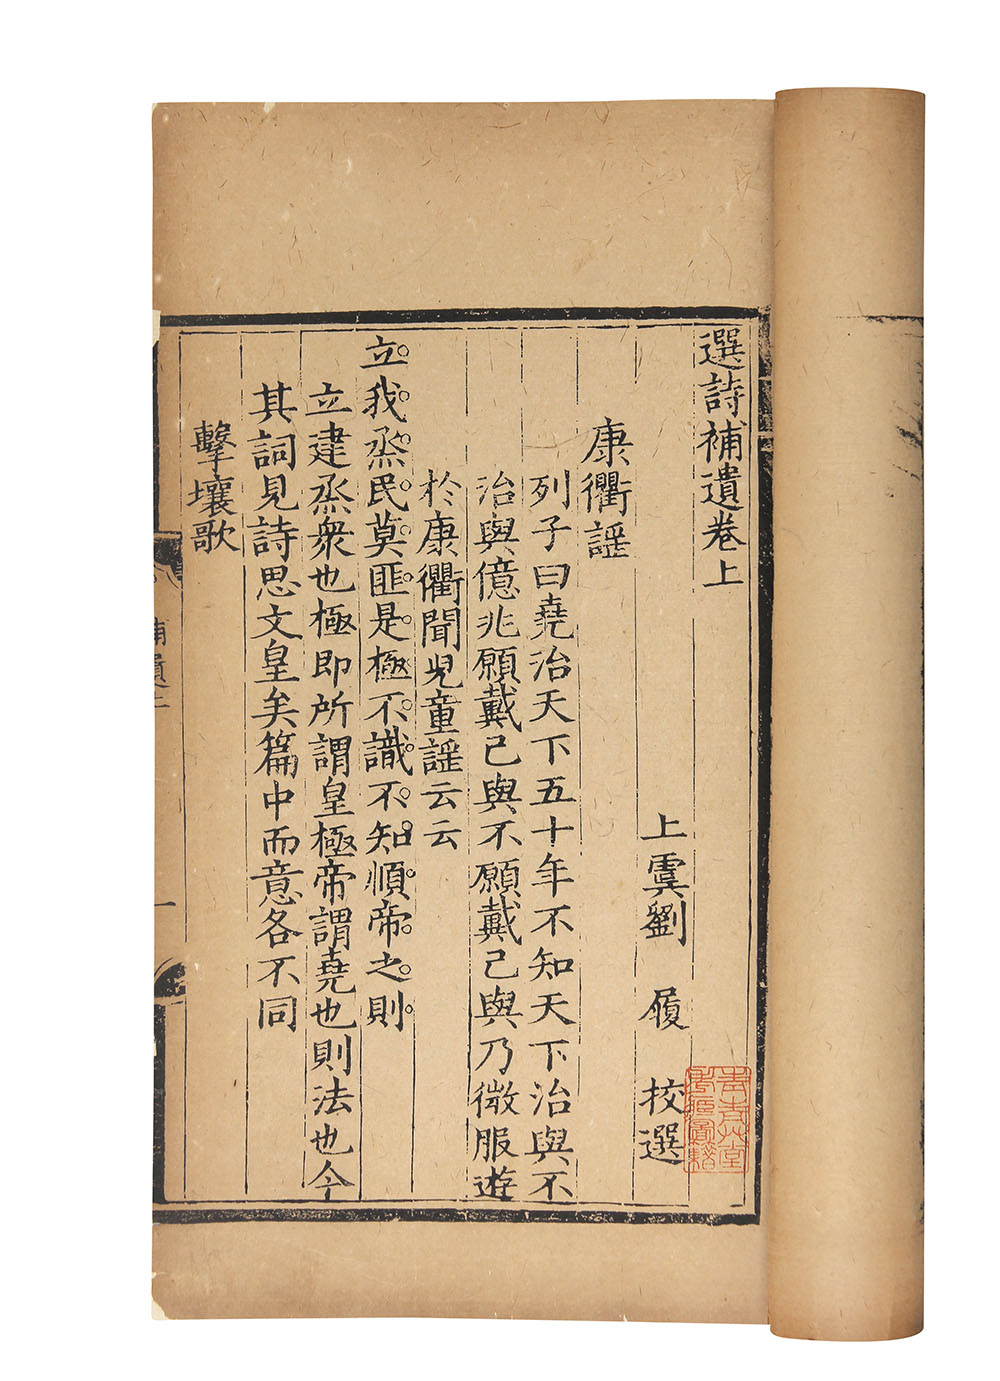 選詩補遺卷上
上虞劉 履 校選
康衢謡
列子曰堯治天下五十年不知天下治與不
治與億兆願戴己與不願戴己與乃微服遊
於康衢聞兒童謡云云
立我烝民莫匪是極不識不知順帝之則
立建烝衆也極即所謂皇極帝謂堯也則法也今
其詞見詩思文皇矣篇中而意各不同
擊壤歌
補遺上
一